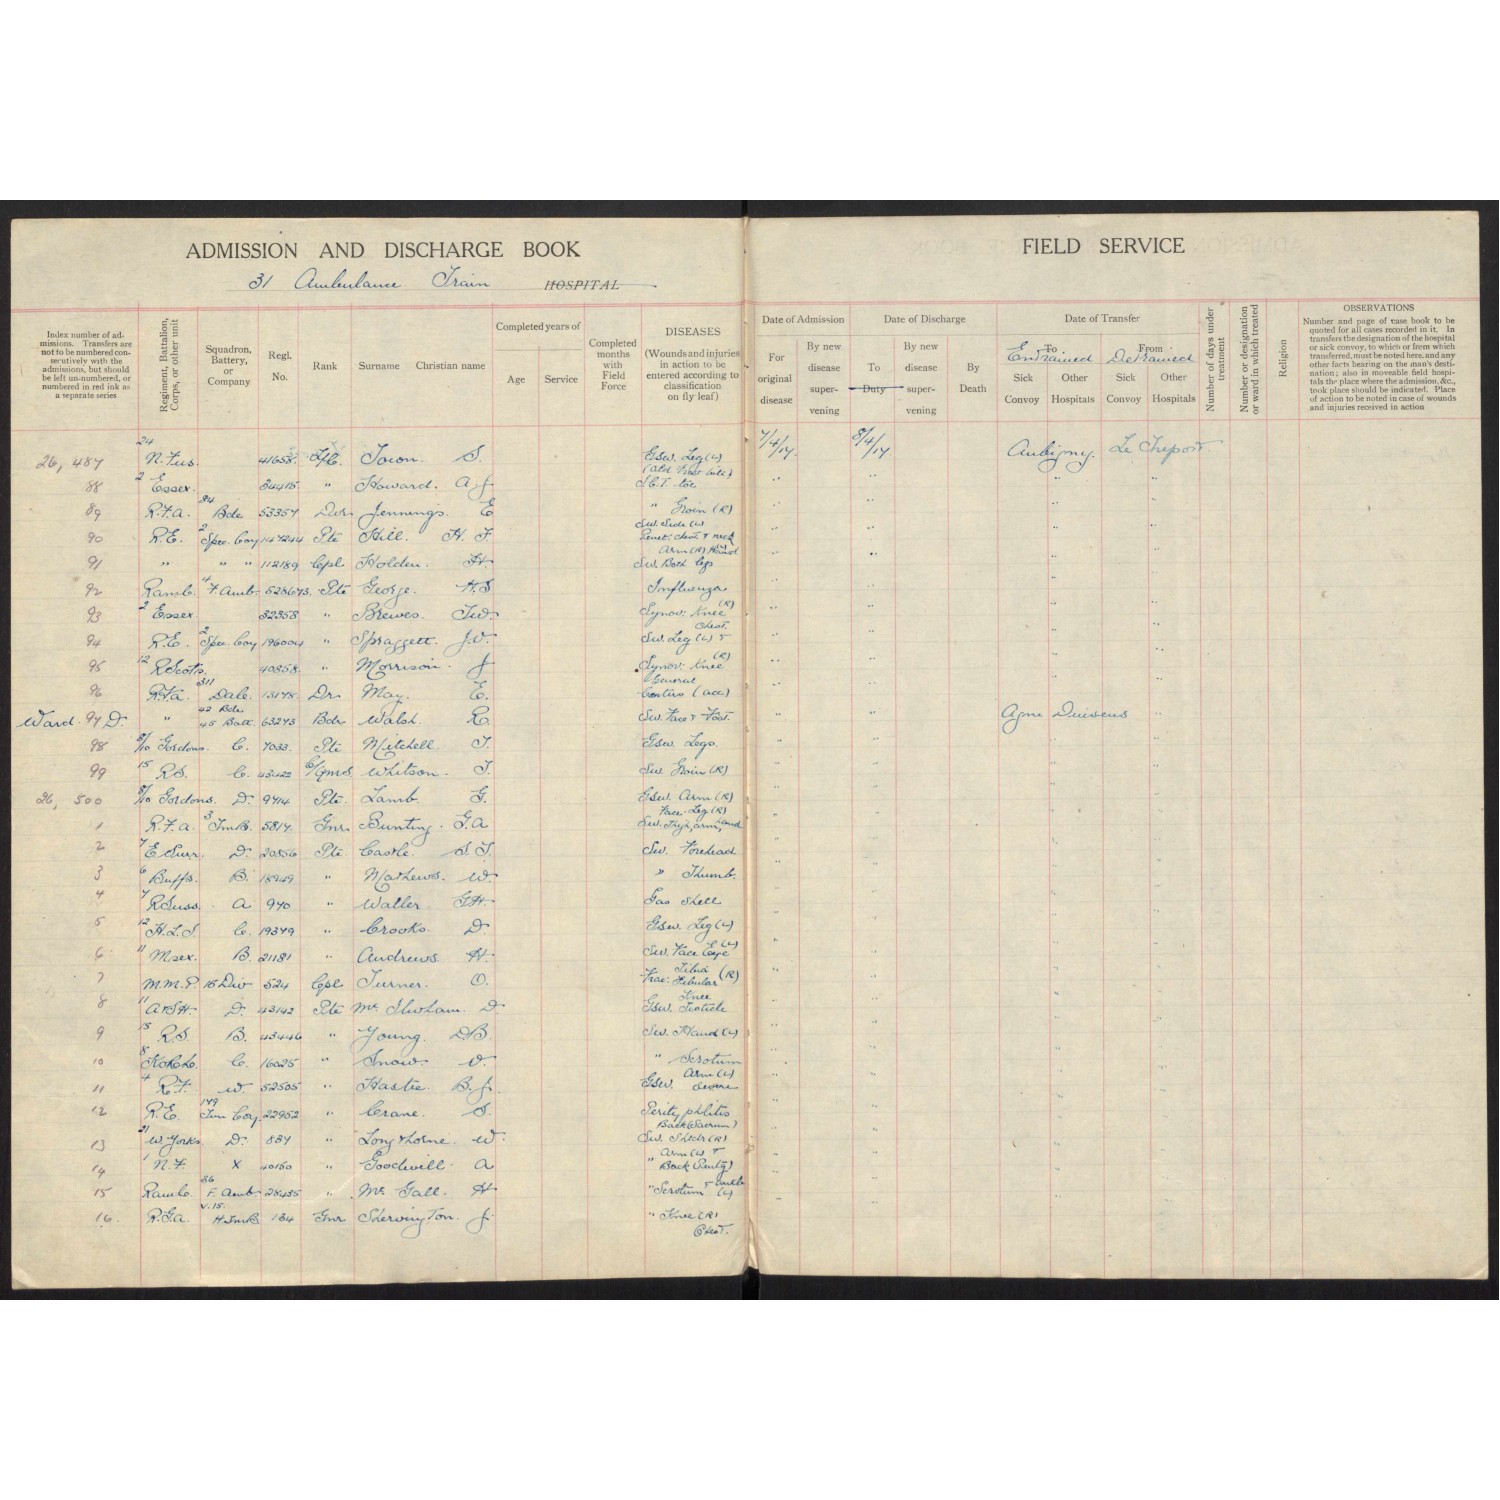 ADMISSION AND DISCHARGE BOOK
31 Ambulance Train HOSPITAL
FIELD SERVICE
Index number of admissions. Transfers are not to be numbered consecutively with the admissions, but should be left un-numbered, or numbered in red ink as a separate series
Regiment, Battalion, Corps, or other unit
Squadron, Battery, or Company
Regl. No.
Rank
Surname Christian name
Completed years of
Age Service
Completed months with Field Force
DISEASES
(Wounds and injuries in action to be entered according to classification on fly leaf)
Date of Admission
For original disease
By new disease supervening
Date of Discharge
To Duty
By new disease supervening
By Death
Date of Transfer
To Entrained
From Detrained
Sick Convoy Other Hospitals Sick Convoy Other Hospitals
Number of days under treatment
Number or designation or ward in which treated
Religion
OBSERVATIONS
Number and page of case book to be quoted for all cases recorded in it. In transfers the designation of the hospital or sick convoy, to which or from which transferred, must be noted here, and any other facts bearing on the man's destination; also in moveable field hospitals the place where the admission, &c., took place should be indicated. Place of action to be noted in case of wounds and injuries received in action
26,487 24 N. Fus. 41658 L/C. Town S. GSW. Leg (L) 7/4/17 8/4/17 Aubigny. Le Treport
88 2 Essex. 34415 " Howard. A J I.C.T. toe " " " "
89 R.F.A. 34 Bde 53357 Dvr Jennings. E " Groin (R) " " " "
90 R.E. 2 Spec. Coy 147244 Pte Hill. H. F Sw. Side (L) Penet: chest & neck " " " "
91 " " " 112189 Cpl Holden. H Arm (R) Hand Sw. Both legs " " " "
92 Ramc. 4 F. Amb. 528673. Pte George. H.S Influenza " " " "
93 2 Essex 32358 " Brewes. T.W. Synov: Knee (R) " " " "
94 R.E. 2 Spec. Coy 196004 " Spraggett. J.W. Sw. Leg (L) & Chest. " " " "
95 12 R Scots. 40858. " Morrison. J Synov: Knee (R) " " " "
96 R.F.A. 311 Dale. 13178. Dr May. E. General Contus (acc) " " " "
Ward. 97 D. " 42 Bde 45 Batt. 63273 Bdr Walsh. R. Sw. Face & Foot. " " Agnez Duisans "
98 8/10 Gordons. C. 7033. Pte Mitchell. T. GSW. Legs. " " " "
99 15 R.S. C. 43422 C/QmS Whitson. T. Sw Groin (R) " " " "
26, 500 8/10 Gordons. D. 9714 Pte. Lamb. G. GSW. Arm (R) " " " "
1 R.F.A. 3 TmB. 5817. Gnr Bunting. G.A Face. Leg (R) Sw. Thigh, arm, hand " " " "
2 7 E Surr. D. 20856 Pte Castle. S.T. Sw. Forehead " " " "
3 6 Buffs. B. 18949 " Mathews. W. " Thumb. " " " "
4 7 R Suss. A 970 " Waller. G.H. Gas Shell " " " "
5 12 H.L.I C. 19379 " Crooks. D. GSW. Leg (L) " " " "
6 11 Msex. B. 21181 " Andrews H. Sw. Face Eye (L) " " " "
7 M.M.P. 15 Div 524 Cpl Turner. O. Frac: Tibia Fibular (R) " " " "
8 11 A&SH. D. 43142 Pte D. GSW. Knee Testicle " " " "
9 13 R.S. B. 43446 " Young. D.B. Sw. Hand (L) " " " "
10 8 C. 16025 " Snow. V. " Scrotum " " " "
11 4 R.F. W. 52505 " Hastie. B. J. GSW. Arm (L) Severe " " " "
12 R.E. 179 Tun Coy. 22952 " Crane. S. Perityphlitis " " " "
13 21 W. Yorks D. 887 " Longthorne. W. Back (Sacrum) Sw. Shldr (R) " " " "
14 1 N.F. X 40160 " Goodwill. A " Arm (L) & Back " " " "
15 Ramc. 36 F. Amb. 28435 " Mc Gall. H " Scrotum & (L) " " " "
16. R.G.A. V.15. H.TmB 134 Gnr Shervington. J. " Knee (R) Chest. " " " "